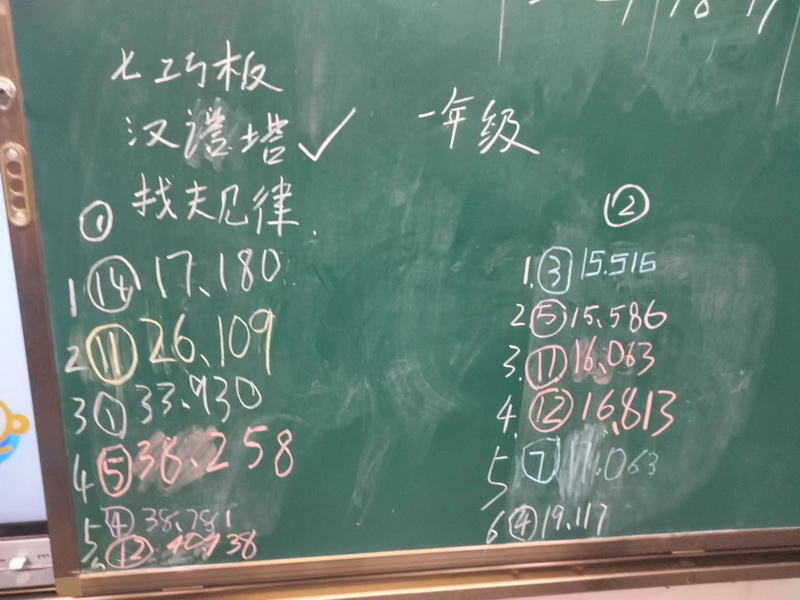 七巧板
汉诺塔✓
找夫见律
一年级
①
1 ⑭ 17.180
2 ⑪ 26.109
3 ① 33.930
4 ⑤ 38.258
5 ④ 38.781
⑫ 40.938
②
1. ③ 15.516
2. ⑤ 15.586
3. ⑪ 16.063
4. ⑫ 16.813
5 ⑦ 17.063
6 ④ 19.117